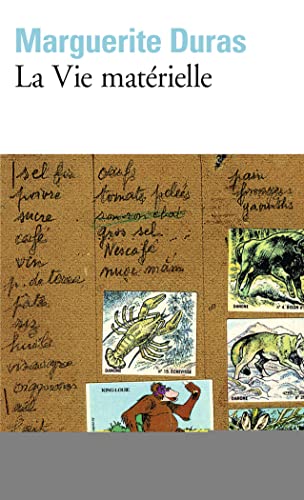 Marguerite Duras
folio
La Vie matérielle
sel fin
poivre
sucre
café
vin
p. de terre
pâtes
riz
huile
vinaigre
oignons
ail
lait
œufs
tomates pelées
gros sel
Nescafé
nuoc mâm
pain
fromages
yaourths
DANONE
N° 15. ÉCREVISSE
DANONE
DANONE
KING LOUIE